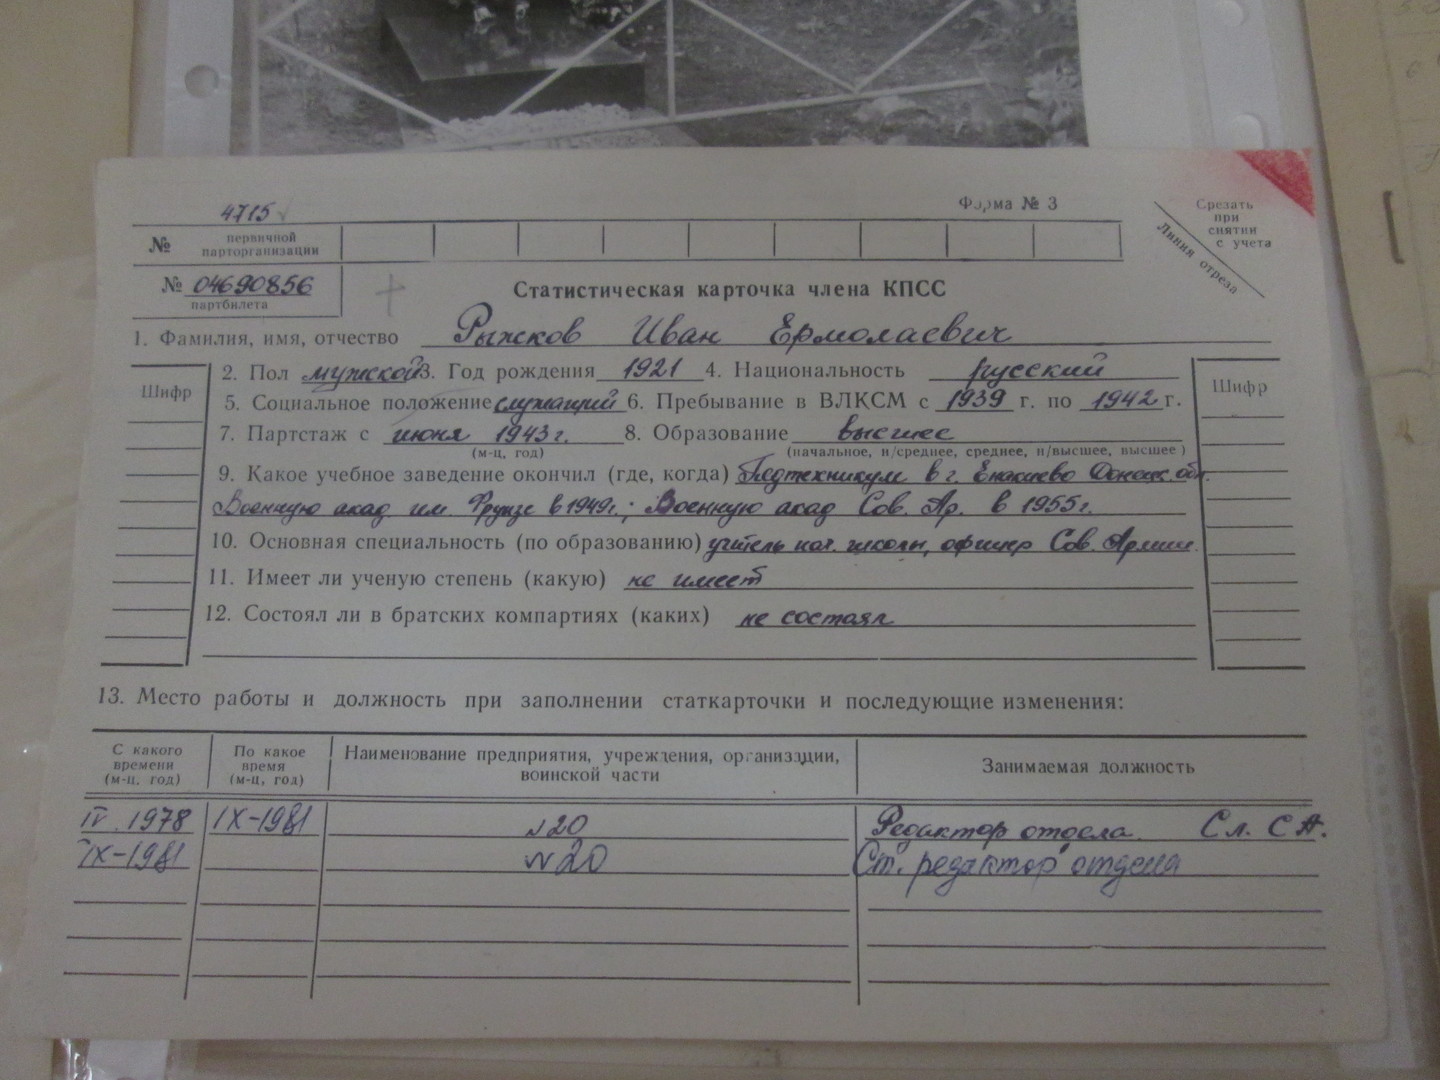 4715
Форма № 3
Срезать
при
снятии
с учета
Линия отреза
№ первичной
парторганизации
№ 04690856
партбилета
Статистическая карточка члена КПСС
1. Фамилия, имя, отчество Рыжков Иван Ермолаевич
Шифр
2. Пол мужской 3. Год рождения 1921 4. Национальность русский
Шифр
5. Социальное положение служащий 6. Пребывание в ВЛКСМ с 1939 г. по 1942 г.
7. Партстаж с июня 1943 г. 8. Образование высшее
(м-ц, год) (начальное, н/среднее, среднее, н/высшее, высшее)
9. Какое учебное заведение окончил (где, когда) Педтехникум в г. Енакиево Донецк. обл.
Военную акад. им. Фрунзе в 1949г.; Военную акад Сов. Ар. в 1955г.
10. Основная специальность (по образованию) учитель нач. школы, офицер Сов. Армии.
11. Имеет ли ученую степень (какую) не имеет
12. Состоял ли в братских компартиях (каких) не состоял
13. Место работы и должность при заполнении статкарточки и последующие изменения:
С какого
времени
(м-ц, год)
По какое
время
(м-ц, год)
Наименование предприятия, учреждения, организации,
воинской части
Занимаемая должность
IV. 1978 IX-1981 №20 Редактор отдела Сл. СА.
IX-1981 №20 Ст. редактор отдела